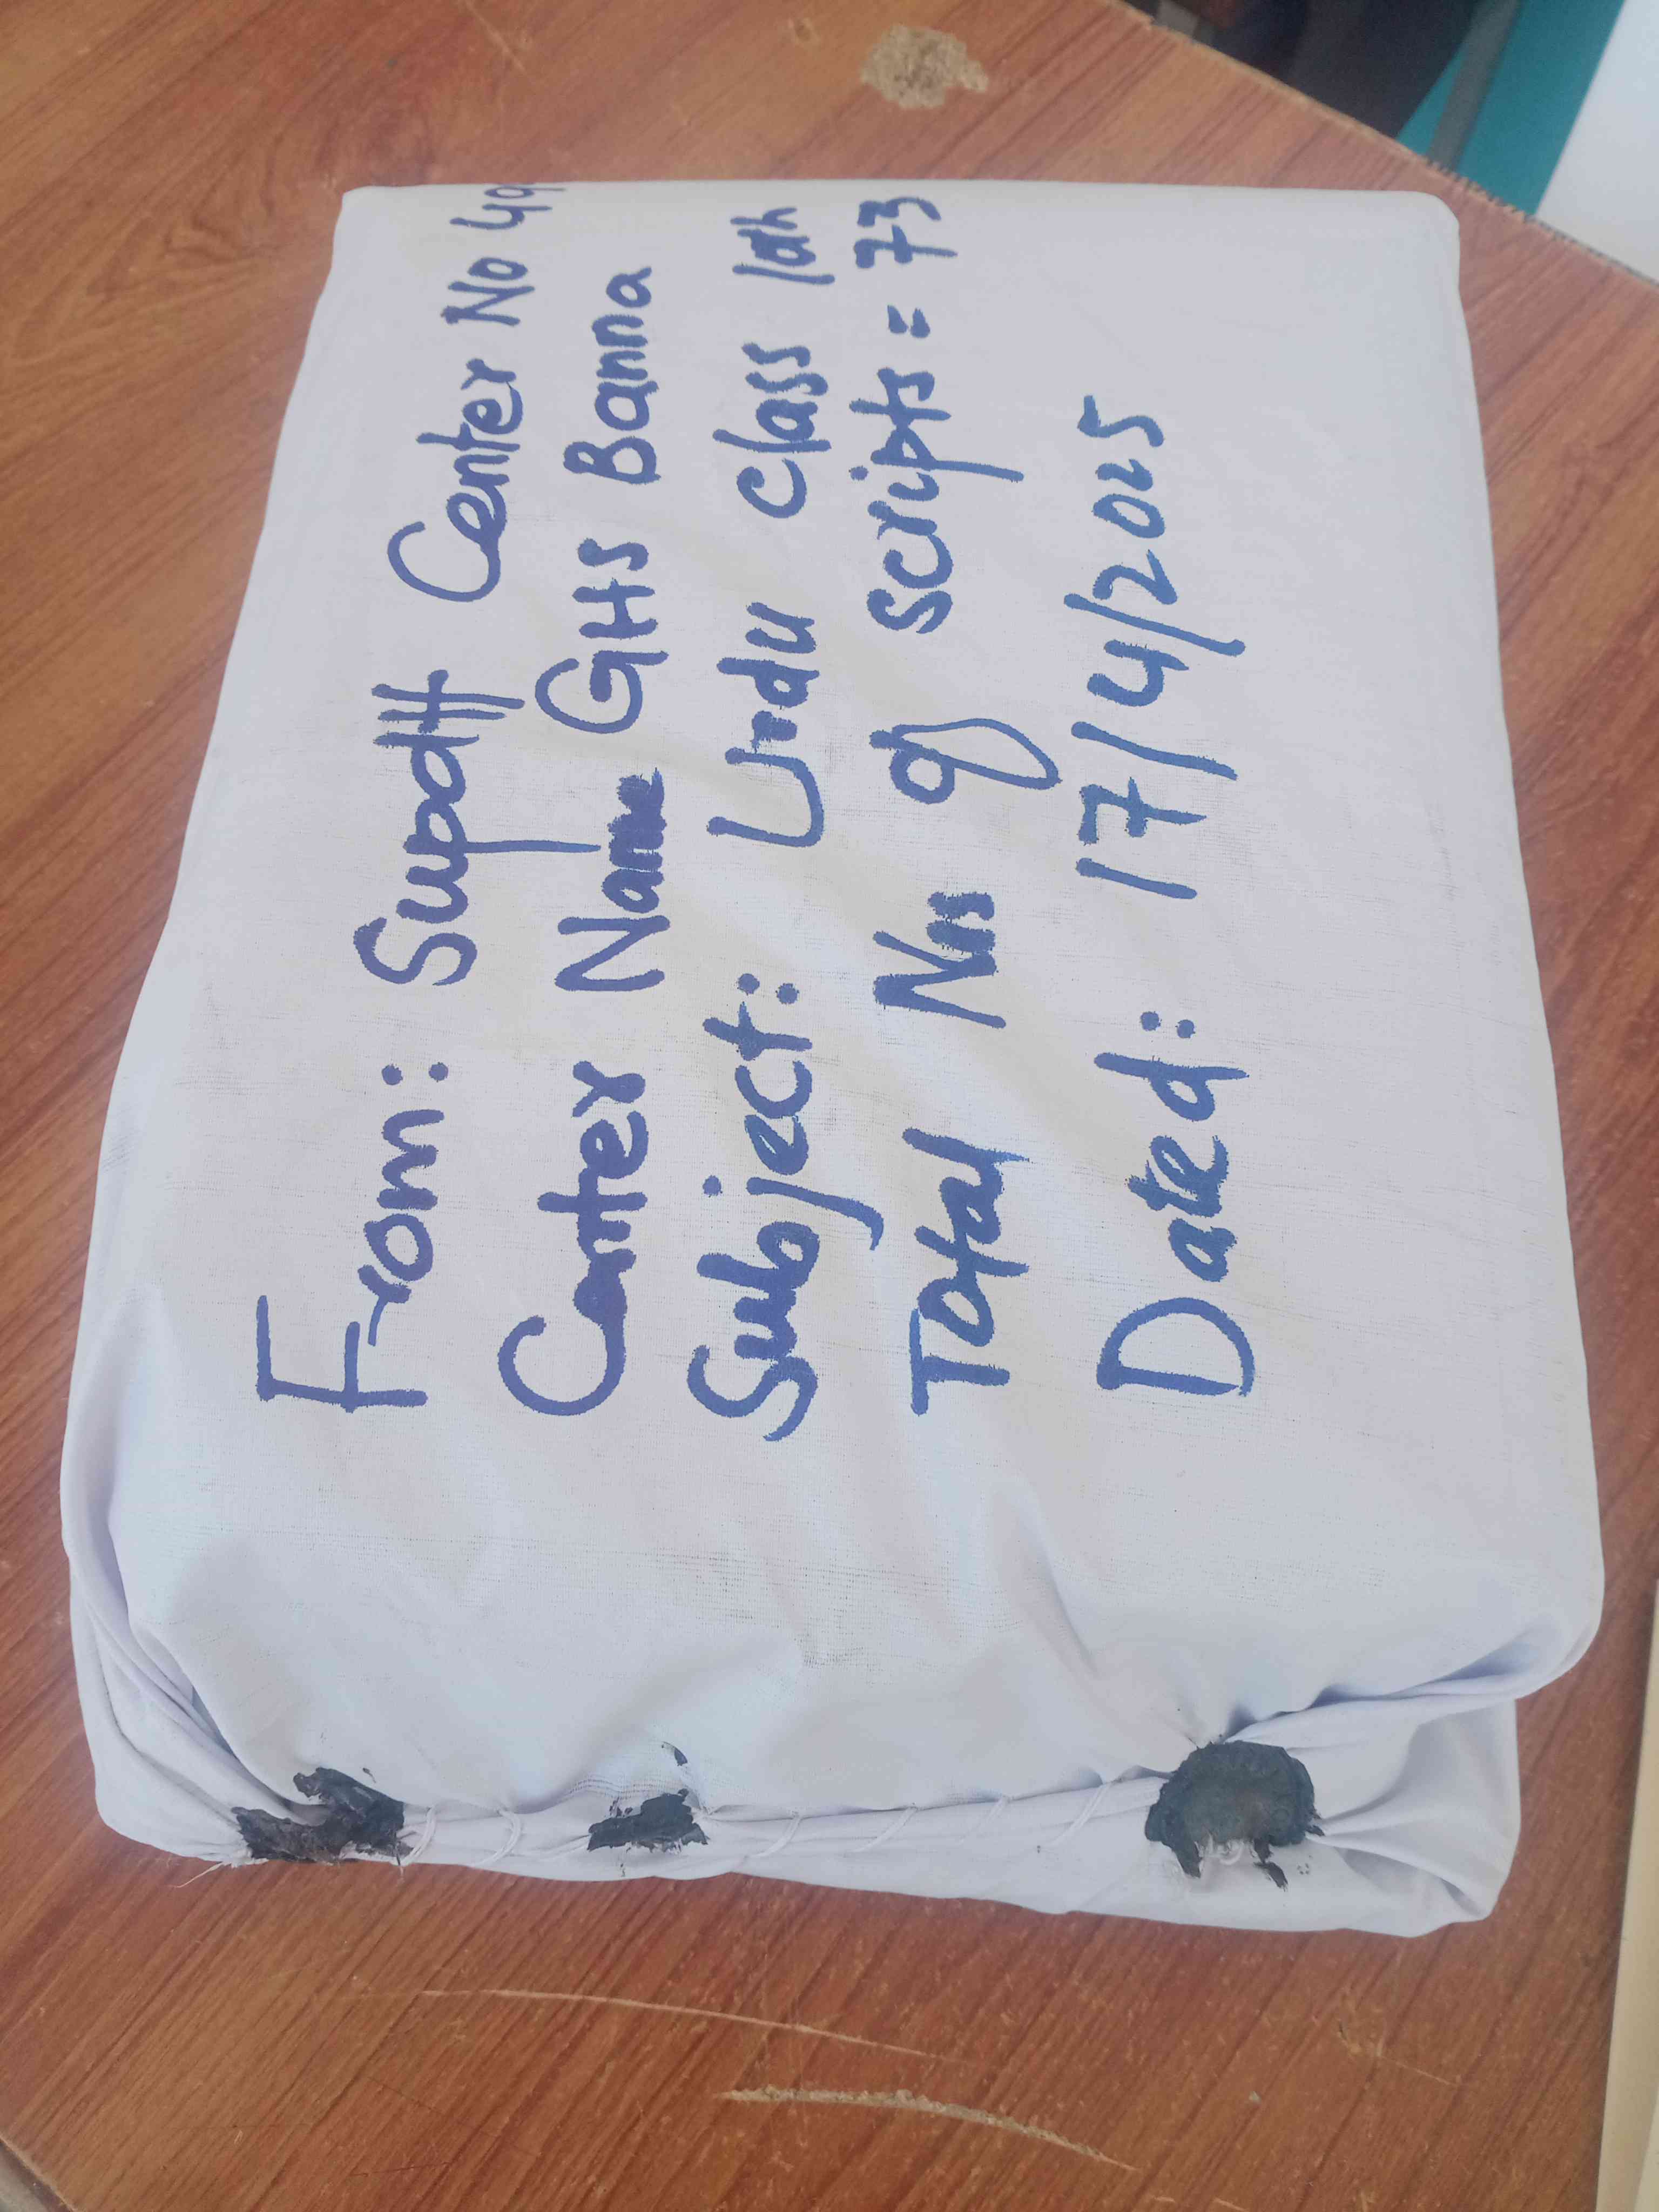 From: Supdtt Center No 49
Center Name GHS Banna
Subject: Urdu Class 10th
Total No of scripts = 73
Dated: 17/4/2025